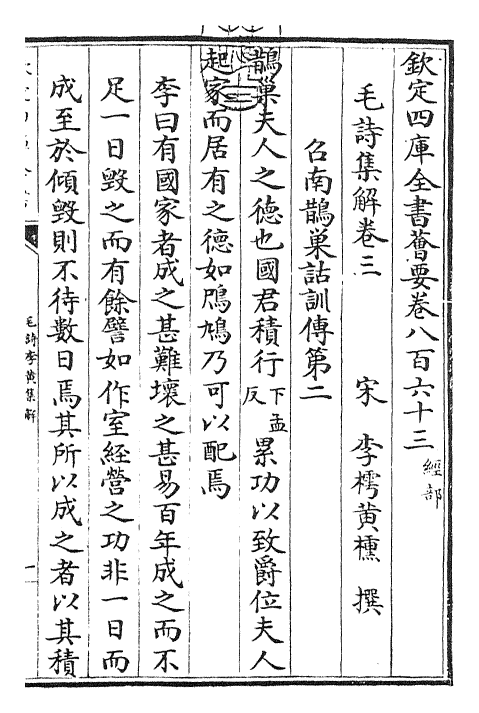 欽定四庫全書薈要卷八百六十三 經部
毛詩集解卷三 宋 李樗黄櫄 撰
召南鵲巢詁訓傳第二
鵲巢夫人之德也國君積行下孟反累功以致爵位夫人
起家而居有之德如鳲鳩乃可以配焉
李曰有國家者成之甚難壞之甚易百年成之而不
足一日毁之而有餘譬如作室經營之功非一日而
成至於傾毁則不待數日焉其所以成之者以其積
毛詩李黄集解
一